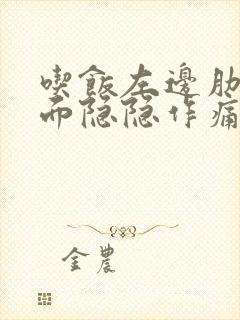 喫飯左邊肋
而隐隐作痛
金農